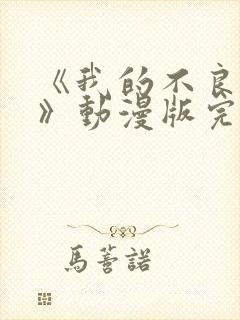 《我的不良
》動漫版完
馬薔諾